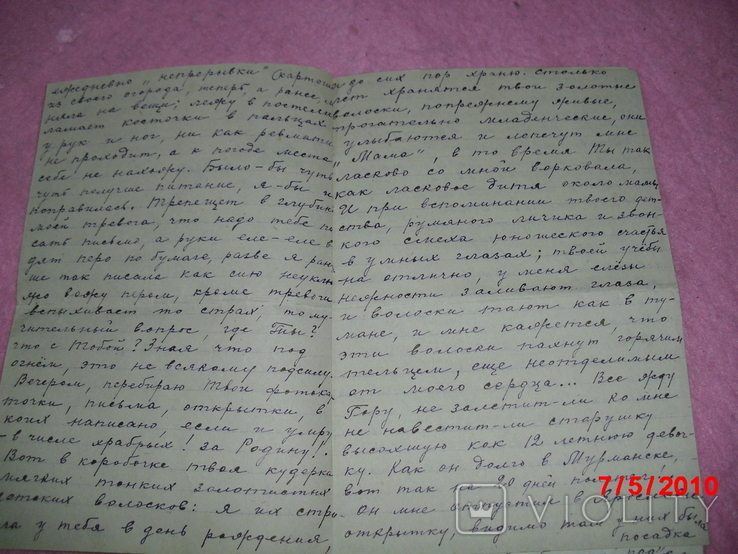 ежедневно „непрерывки" (картошка
из своего огорода, теперь, а ранее, ме-
няла на вещи; лежу в постели
ламает косточки в пальцах
у рук и ног, ни как ревмати
не проходит, а к погоде места
себе не нахожу. Было-бы чуть
чуть получше питание, я-бы и
поправилась. Трепещет в глубине
моей тревога, что надо тебе пи
сать письмо, а руки еле-еле в
дят перо по бумаге, разве я ран-
ше так писала как сию неуклю
жо вожу пером, кроме тревоги
вспыхивает то страх, то му-
чительный вопрос, где Ты?
что с Тобой? Зная что под
огнём, это не всякому подсилу.
Вечером, перебираю Твои фотока
точки, письма, открытки, в
коих написано, если и умру
-в числе храбрых! за Родину!
Вот в коробочке твоя кудерка
мягких тонких золотистых
детских волосков: я их стри
ла у тебя в день рождения,
и до сих пор храню. Столько
лет хранятся твои золотые
волоски, попрежнему живые,
трогательно младенческие, они
улыбаются и лепечут мне
„Мама", в то время Ты так
ласково со мной ворковала,
как ласковое дитя около мамы,
И при вспоминании твоего дет-
ства, румяного личика и звон-
кого смеха юношеского счастья
в умных глазах; твоей учёбы
на отлично, у меня слёзы
нежности заливают глаза,
и волоски тают как в ту-
мане, и мне кажется, что
эти волоски пахнут горячим
тельцем, еще неотделимым
от моего сердца... Все жду
Гору, не залетит-ли ко мне
не навестит-ли старушку
высохшую как 12 летнюю девоч-
ку. Как он долго в Мурманске,
вот так на 20 дней
Он мне опустил в
открытку, видимо там у них была
посадка
7/5/2010
VIOLITY